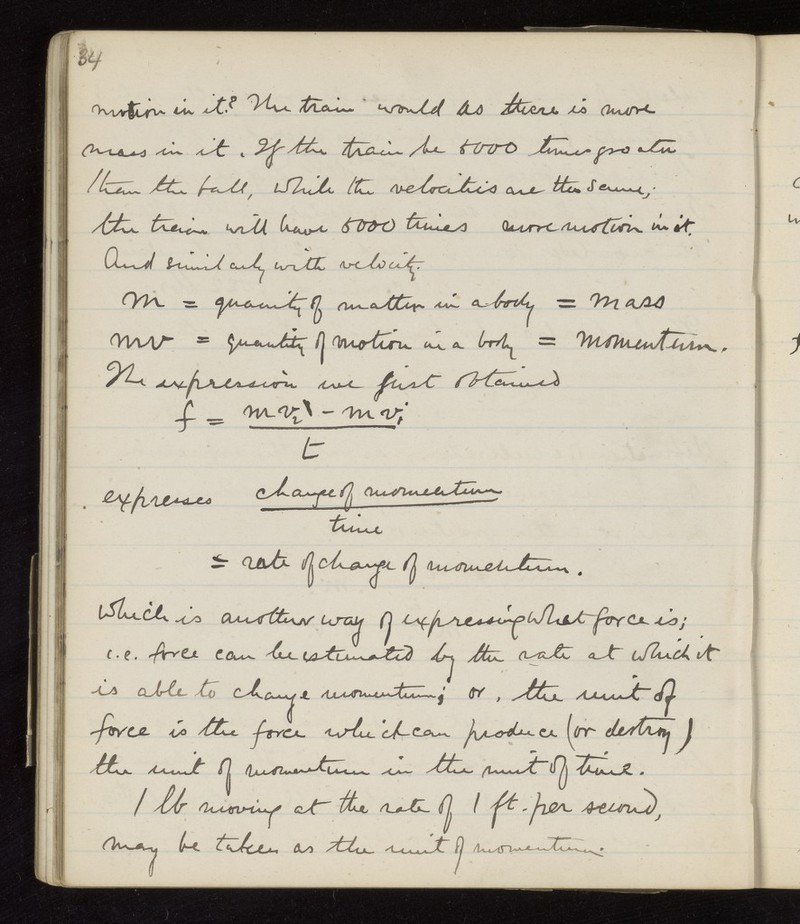 34
motion in it? The train would as there is more
mass in it. If the train be 5000 times greater
than the ball, while the velocities are the same,
the train will have 5000 times more motion in it.
And similarly with velocity.
m = quantity of matter in a body = mass
mv = quantity of motion in a body = momentum.
The expression we first obtained
f = mv₂ - mv₁
t
expresses change of momentum
time
= rate of change of momentum.
Which is another way of expressing what force is;
i.e. force can be estimated by the rate at which it
is able to change momentum; or, the unit of
force is the force which can produce (or destroy)
the unit of momentum in the unit of time.
1 lb moving at the rate of 1 ft. per second,
may be taken as the unit of momentum.